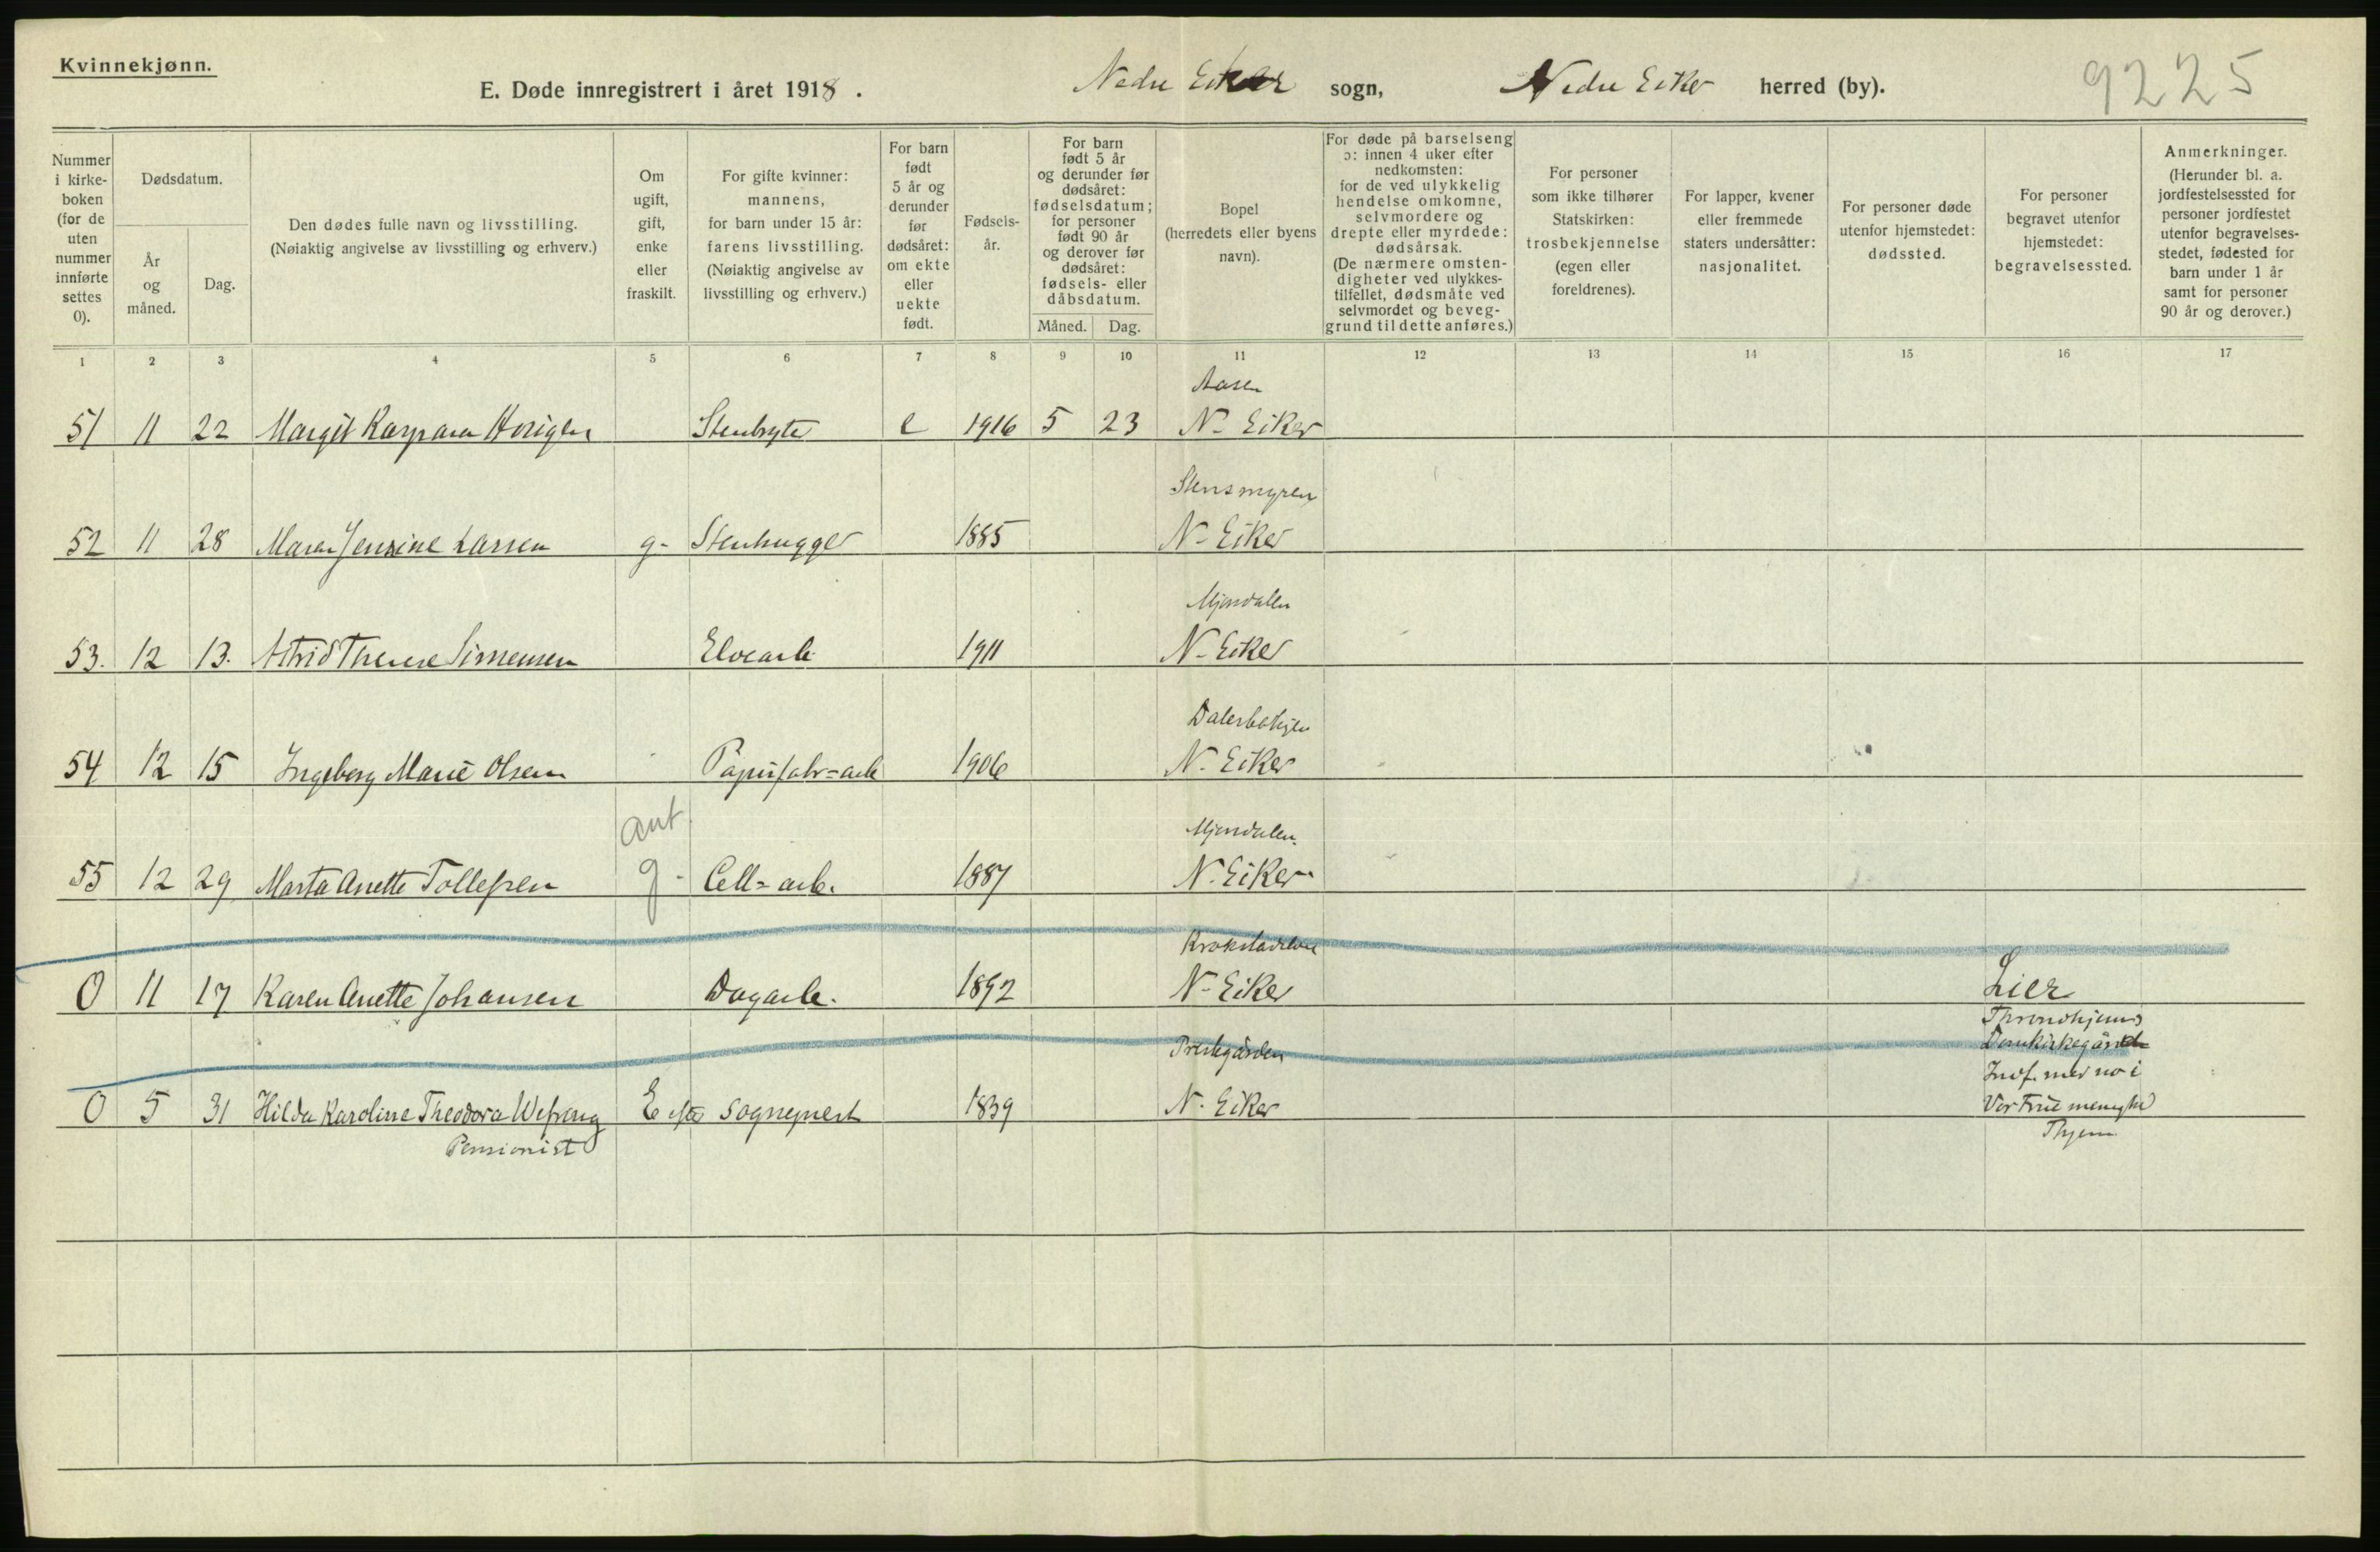 Kvinnekjønn.
E. Døde innregistrert i året 1918. Nedre Eiker sogn, Nedre Eiker herred (by). 9225
Nummer i kirke-boken (for de uten nummer innførte settes 0).
Dødsdatum.
År og måned.
Dag.
Den dødes fulle navn og livsstilling.
(Nøiaktig angivelse av livsstilling og erhverv.)
Om ugift, gift, enke eller fraskilt.
For gifte kvinner: mannens, for barn under 15 år: farens livsstilling. (Nøiaktig angivelse av livsstilling og erhverv.)
For barn født 5 år og derunder før dødsåret: om ekte eller uekte født.
Fødsels-år.
For barn født 5 år og derunder før dødsåret: fødselsdatum; for personer født 90 år og derover før dødsåret: fødsels- eller dåbsdatum.
Måned. Dag.
Bopel (herredets eller byens navn).
For døde på barselseng ɔ: innen 4 uker efter nedkomsten: for de ved ulykkelig hendelse omkomne, selvmordere og drepte eller myrdede: dødsårsak. (De nærmere omsten-digheter ved ulykkes-tilfellet, dødsmåte ved selvmordet og beveg-grund til dette anføres.)
For personer som ikke tilhører Statskirken: trosbekjennelse (egen eller foreldrenes).
For lapper, kvener eller fremmede staters undersåtter: nasjonalitet.
For personer døde utenfor hjemstedet: dødssted.
For personer begravet utenfor hjemstedet: begravelsessted.
Anmerkninger. (Herunder bl. a. jordfestelsessted for personer jordfestet utenfor begravelses-stedet, fødested for barn under 1 år samt for personer 90 år og derover.)
1 2 3 4 5 6 7 8 9 10 11 12 13 14 15 16 17
Aasen
51 11 22 Margit Kaspara Stenbryter e 1916 5 23 N- Eiker
Stensmyren
52 11 28 Maren Jensine Larsen g- Stenhugger 1885 N- Eiker
Mjøndalen
53. 12 13. Astrid Therese Simensen Elvearb. 1911 N- Eiker
54 12 15 Ingeborg Marie Olsen Papirfabr=arb 1906 N- Eiker
ant
Mjøndalen.
55 12 29 Marta Anette Tollefsen g- Cell=arb. 1887 N. Eiker
Krokstadelven
0 11 17 Karen Anette Johansen Dagarb. 1892 N- Eiker Lier
Prestegården
Throndhjems
Domkirkegård
Indf. med no i
0 5 31 Hilda Karoline Theodora Wefring E efter Sogneprest 1839 N. Eiker Vor Frue menighed
Pensionist Thjem